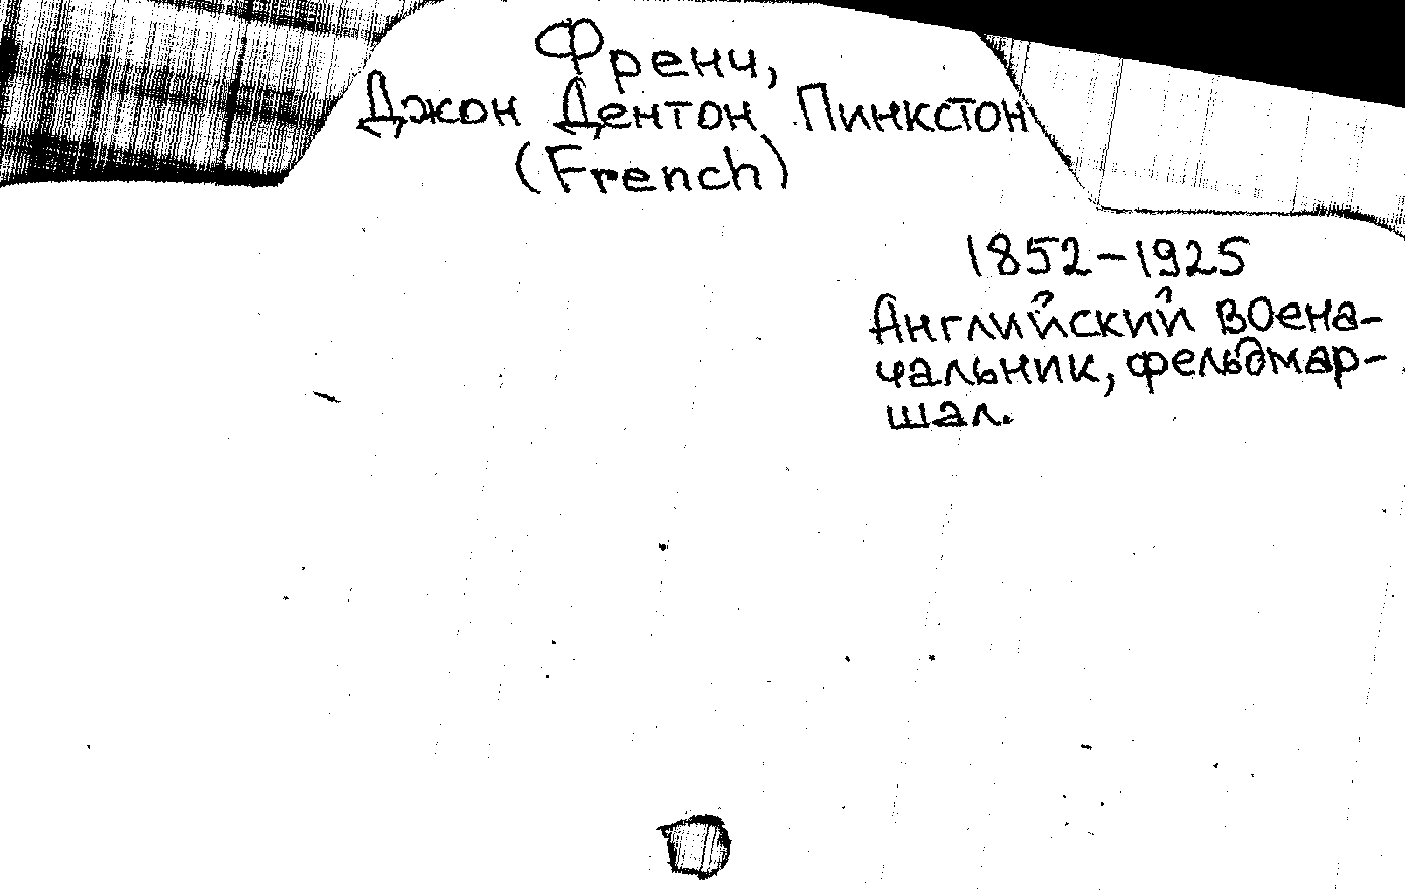 Френч,
Джон Дентон Пинкстон
(French)
1852-1925
Английский военa-
чальник, фельдмар-
шал.